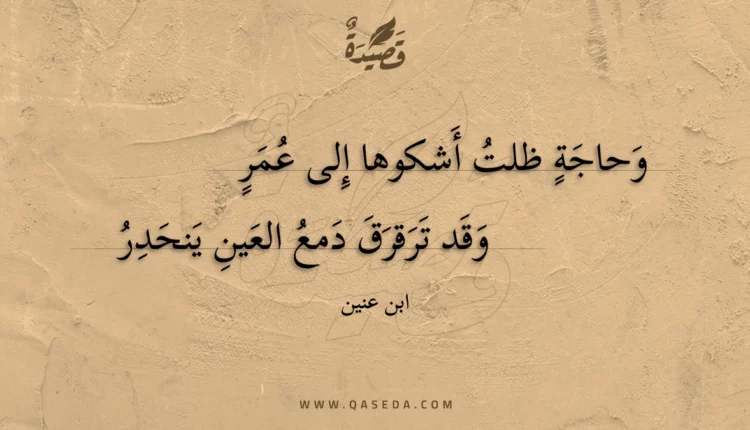 قَصِيْدَةٌ
وَحاجَةٍ ظلتُ أَشكوها إِلى عُمَرٍ
وَقَد تَرَقرَقَ دَمعُ العَينِ يَنحَدِرُ
ابن عنين
WWW.QASEDA.COM